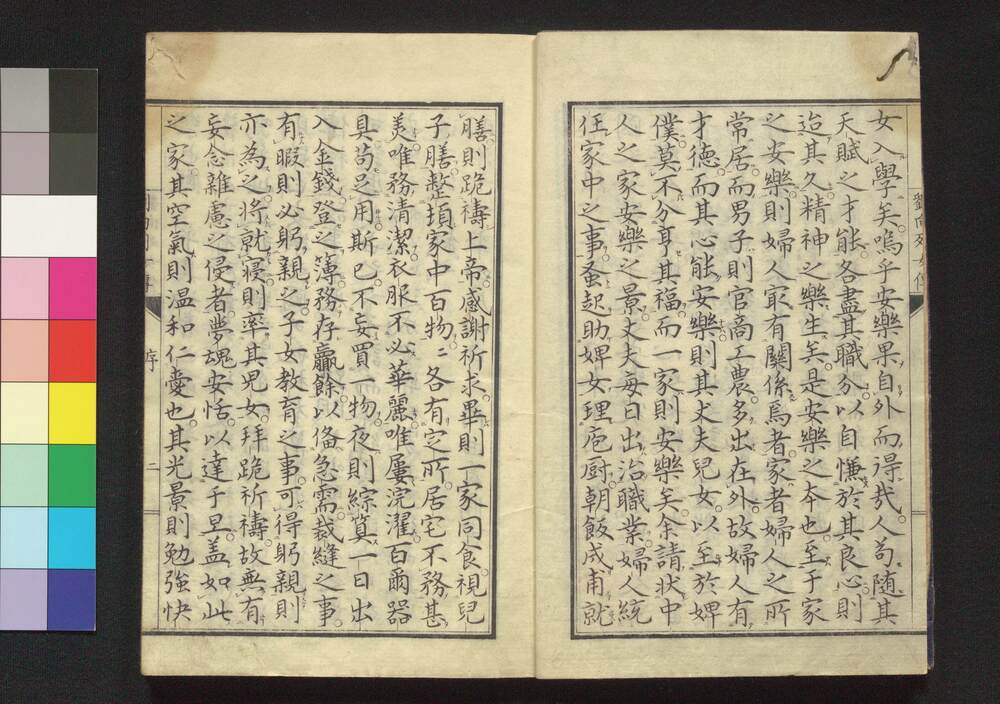 女入學矣。嗚乎安樂果自外而得哉。人苟隨其
天賦之才能。各盡其職分。以自慊於其良心。則
迨其久。精神之樂生矣。是安樂之本也。至于家
之安樂。則婦人冣有關係焉者。家者婦人之所
常居。而男子則官商工農。多出在外。故婦人有
才德。而其心能安樂。則其丈夫兒女。以至於婢
僕。莫不分享其福。而一家則安樂矣。余請狀中
人之家安樂之景。丈夫每日出治職業。婦人統
任家中之事。蚤起助婢女。理庖厨。朝飯成。甫就
膳。則跪禱上帝。感謝祈求。畢則一家同食。視兒
子膳。整頓家中百物。物〻各有定所。居宅不務甚
美。唯務清潔。衣服不必華麗。唯屢浣濯。百爾器
具。苟足用斯已。不妄買一物。夜則綜算一日出
入金錢。登之簿。務存贏餘。以備急需。裁縫之事。
有暇則必躬親之。子女教育之事。可得躬親則
亦為之。將就寢。則率其兒女。拜跪祈禱。故無有
妄念雜慮之侵者。夢魂安恬。以達于旦。盖如此
之家。其空氣則温和仁愛也。其光景則勉強快
序
二